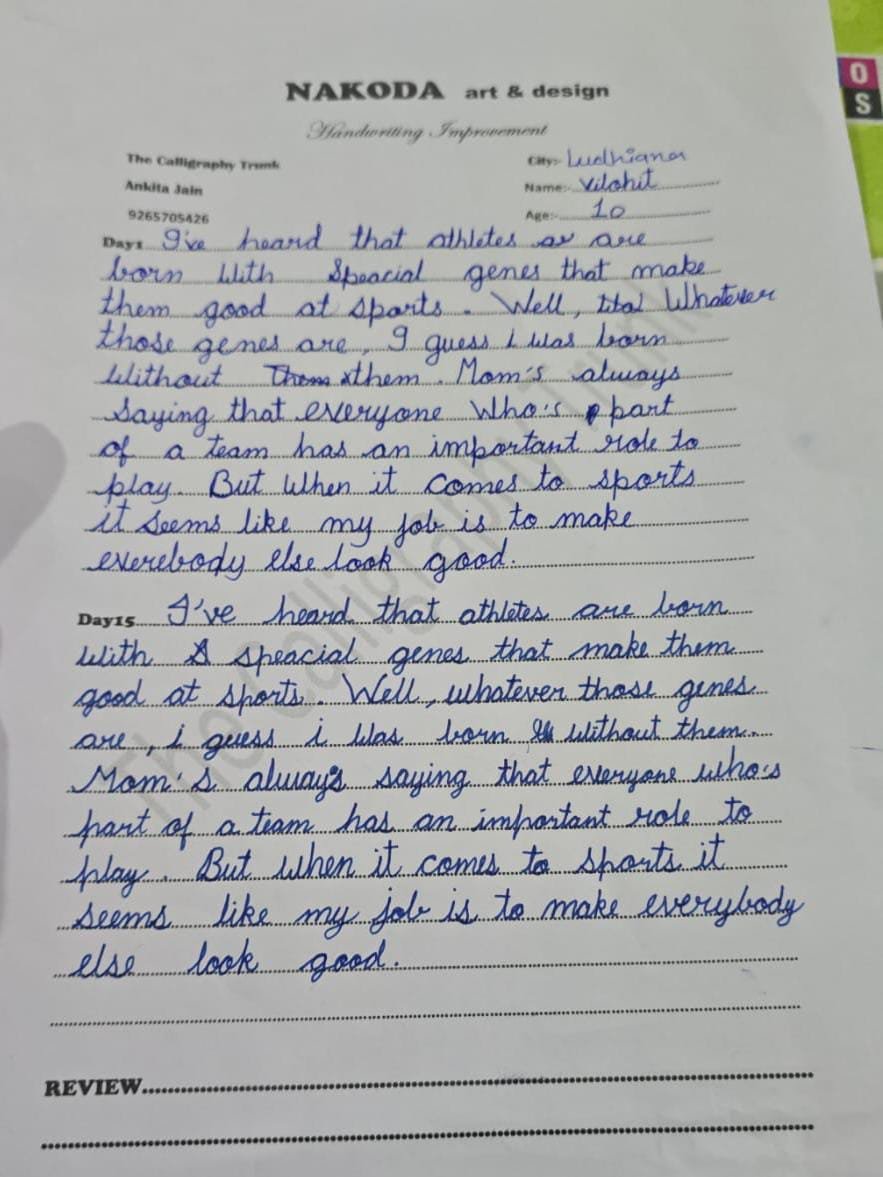 O
S
NAKODA art & design
Handwriting Improvement
The Calligraphy Trunk
City:- Ludhiana
Ankita Jain
Name:- Vilohit
9265705426
Age:- 10
Day1 I've heard that athletes ar are
born with speacial genes that make
them good at sports. Well, Whatever
those genes are, I guess i was born
without Them them. Mom's always
saying that everyone Who's part
of a team has an important role to
play. But when it comes to sports
it seems like my job is to make
everebody else look good.
Day15 I've heard that athletes are born
with speacial genes that make them
good at sports. Well, whatever those genes
are, i guess i was born without them.
Mom's always saying that everyone who's
part of a team has an important role to
play. But when it comes to sports it
seems like my job is to make everybody
else look good.
The Calligraphy Trunk
REVIEW